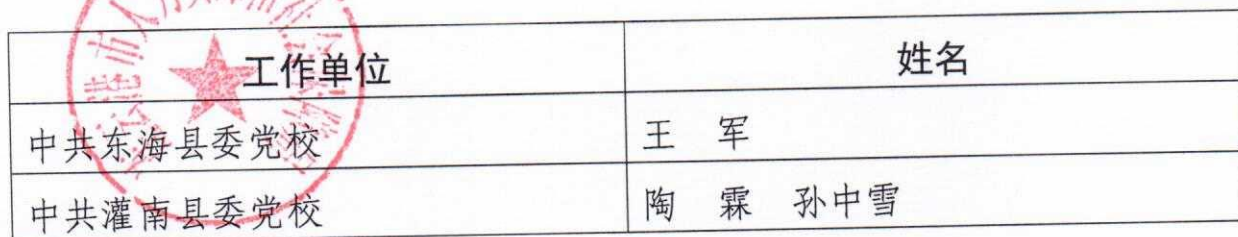 工作单位 姓名
中共东海县委党校 王 军
中共灌南县委党校 陶 霖 孙中雪